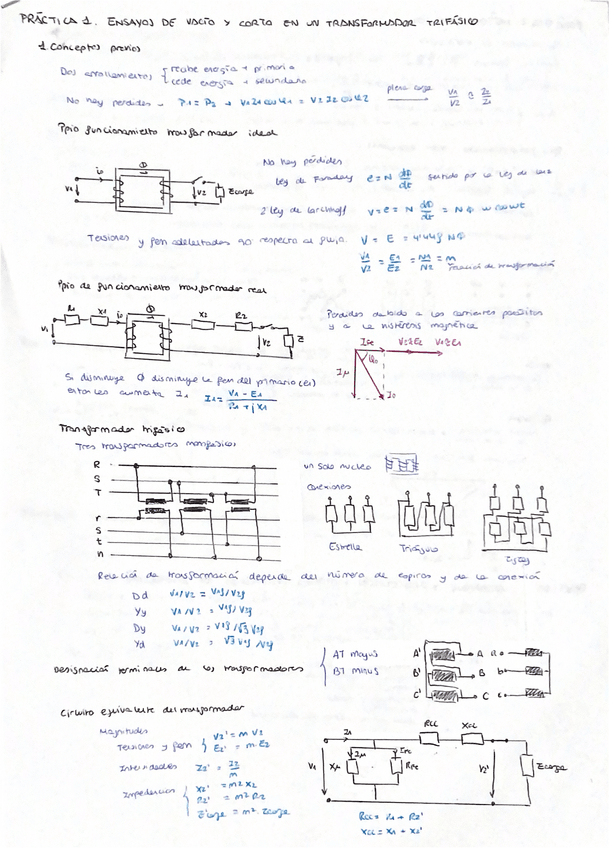 PRÁCTICA 1. ENSAYOS DE VACÍO Y CORTO EN UN TRANSFORMADOR TRIFÁSICO
1 Conceptos previos
Dos arrollamientos { recibe energía → primario
cede energía → secundario
No hay perdidas → P1 = P2 → V1 I1 cos φ1 = V2 I2 cos φ2 plena carga → V1/V2 ≅ I2/I1
Ppio funcionamiento transformador ideal
No hay pérdidas
Ley de Faraday e = N dΦ/dt sentido por la ley de Lenz
2 Ley de Kirchhoff v = e = N dΦ/dt = NΦ w cos wt
io Φ V1 V2 Zcarga
Tensiones y fem adelantadas 90 respecto al flujo. V = E = 4'44 f NΦ
V1/V2 = E1/E2 = N1/N2 = m relación de transformación
Ppio de funcionamiento transformador real
R1 X1 io Φ X2 R2 V1 V2 Z
Perdidas debido a las corrientes parásitas
y a la histéresis magnética
IFe V2≅E2 V1≅E1
Iμ φo Io
Si disminuye Φ disminuye la fem del primario (e1)
entonces aumenta I1 I1 = V1 - E1 / R1 + jX1
Transformador trifásico
Tres transformadores monofásicos
R
S
T
r
s
t
n
un solo nucleo
Conexiones
Estrella Triángulo Zigzag
Relación de transformación depende del número de espiras y de la conexión
Dd V1/V2 = V1f/V2f
Yy V1/V2 = V1f/V2f
Dy V1/V2 = V1f/√3 V2f
Yd V1/V2 = √3 V1f/V2f
Designación terminales de los transformadores { AT mayus
BT minus
A' A a
B' B b
C' C c
Circuito equivalente del transformador
Magnitudes
Tensiones y fem { V2' = m V2
E2' = m·E2
Intensidades I2' = I2/m
Impedancias { X2' = m2 X2
R2' = m2 R2
Z'carga = m2·Zcarga
I1 Rcc Xcc
V1 Xμ Iμ IFe RFe V2' Zcarga
Rcc = R1 + R2'
Xcc = X1 + X2'